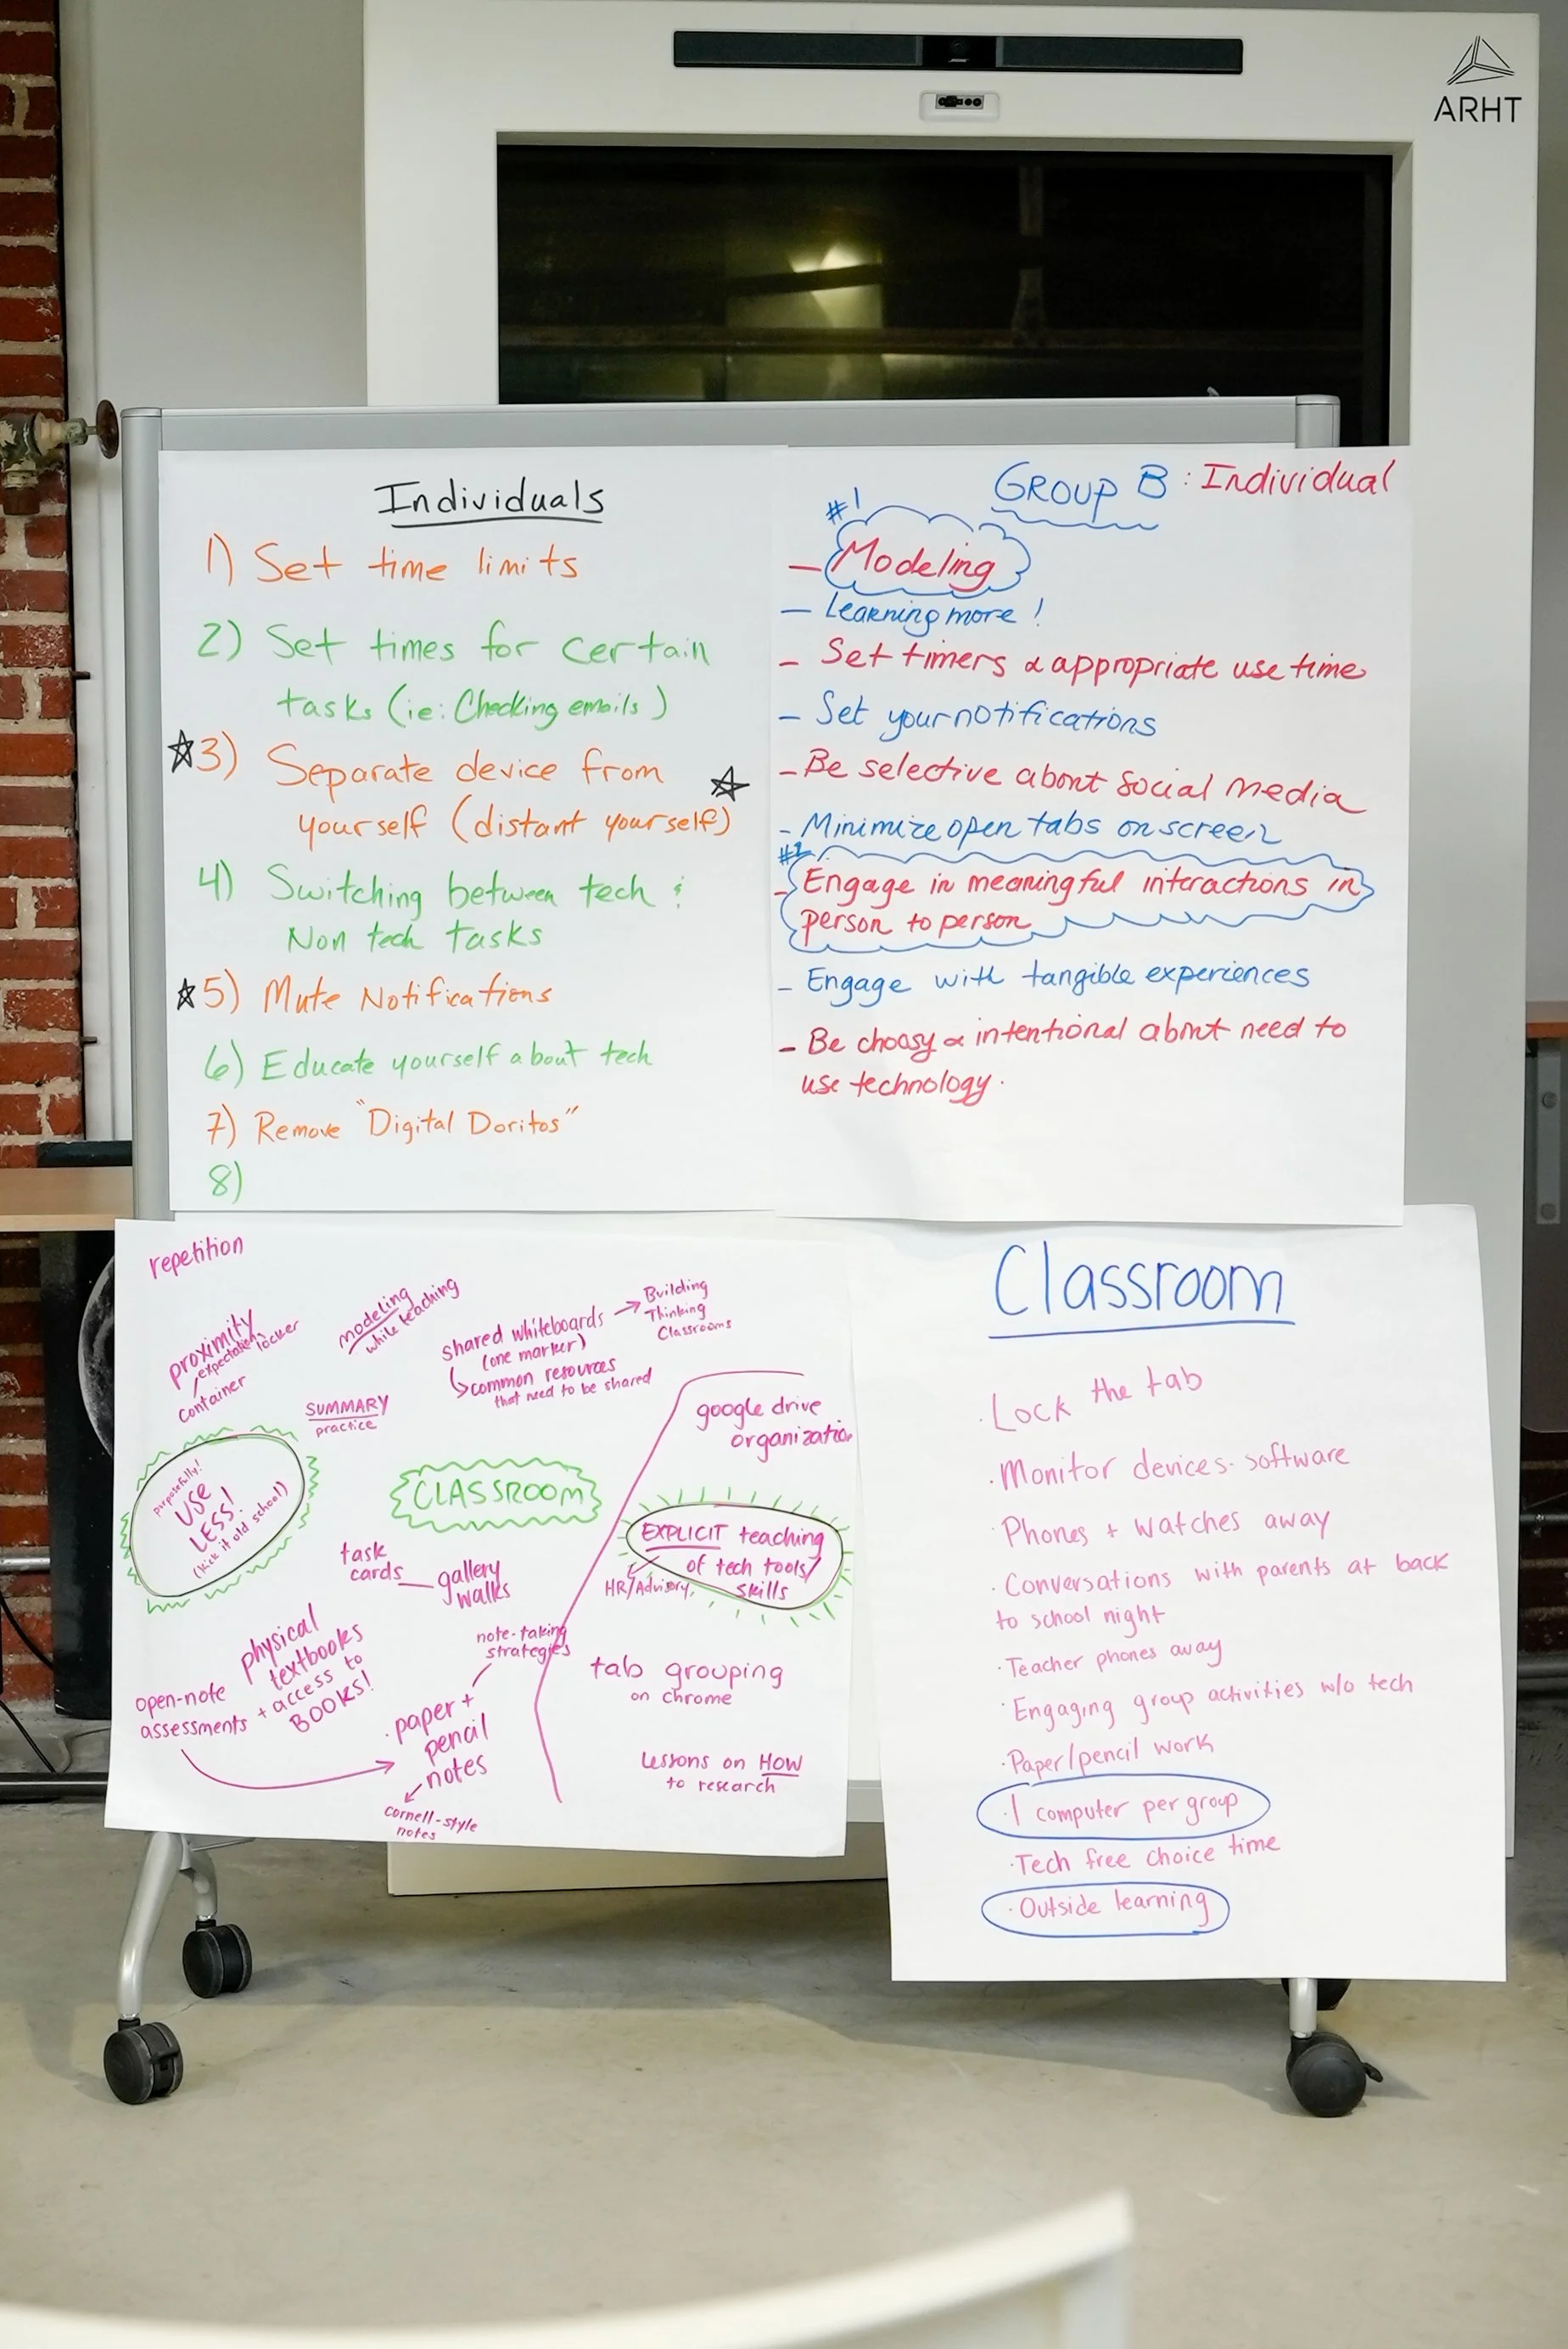 ARHT
Individuals
1) Set time limits
2) Set times for certain
tasks (ie: Checking emails)
☆3) Separate device from ☆
yourself (distant yourself)
4) Switching between tech &
Non tech tasks
☆5) Mute Notifications
6) Educate yourself about tech
7) Remove "Digital Doritos"
8)
GROUP B : Individual
#1
– Modeling
– Learning more!
– Set timers & appropriate use time
– Set your notifications
– Be selective about social media
– Minimize open tabs on screen
#2
– Engage in meaningful interactions in
person to person
– Engage with tangible experiences
– Be choosy & intentional about need to
use technology.
repetition
proximity
expectation
locker
container
modeling
while teaching
shared whiteboards → Building
Thinking
Classrooms
(one marker)
↳ common resources
that need to be shared
SUMMARY
practice
purposefully!
USE
LESS!
(kick it old school)
CLASSROOM
task
cards — gallery
walks
physical
textbooks
+ access to
BOOKS!
open-note
assessments
note-taking
strategies
· paper +
pencil
notes
cornell-style
notes
google drive
organization
EXPLICIT teaching
of tech tools/
skills
HR/Advisory
tab grouping
on chrome
lessons on HOW
to research
Classroom
· Lock the tab
· Monitor devices - software
· Phones + watches away
· Conversations with parents at back
to school night
· Teacher phones away
· Engaging group activities w/o tech
· Paper/pencil work
· 1 computer per group
· Tech free choice time
· Outside learning